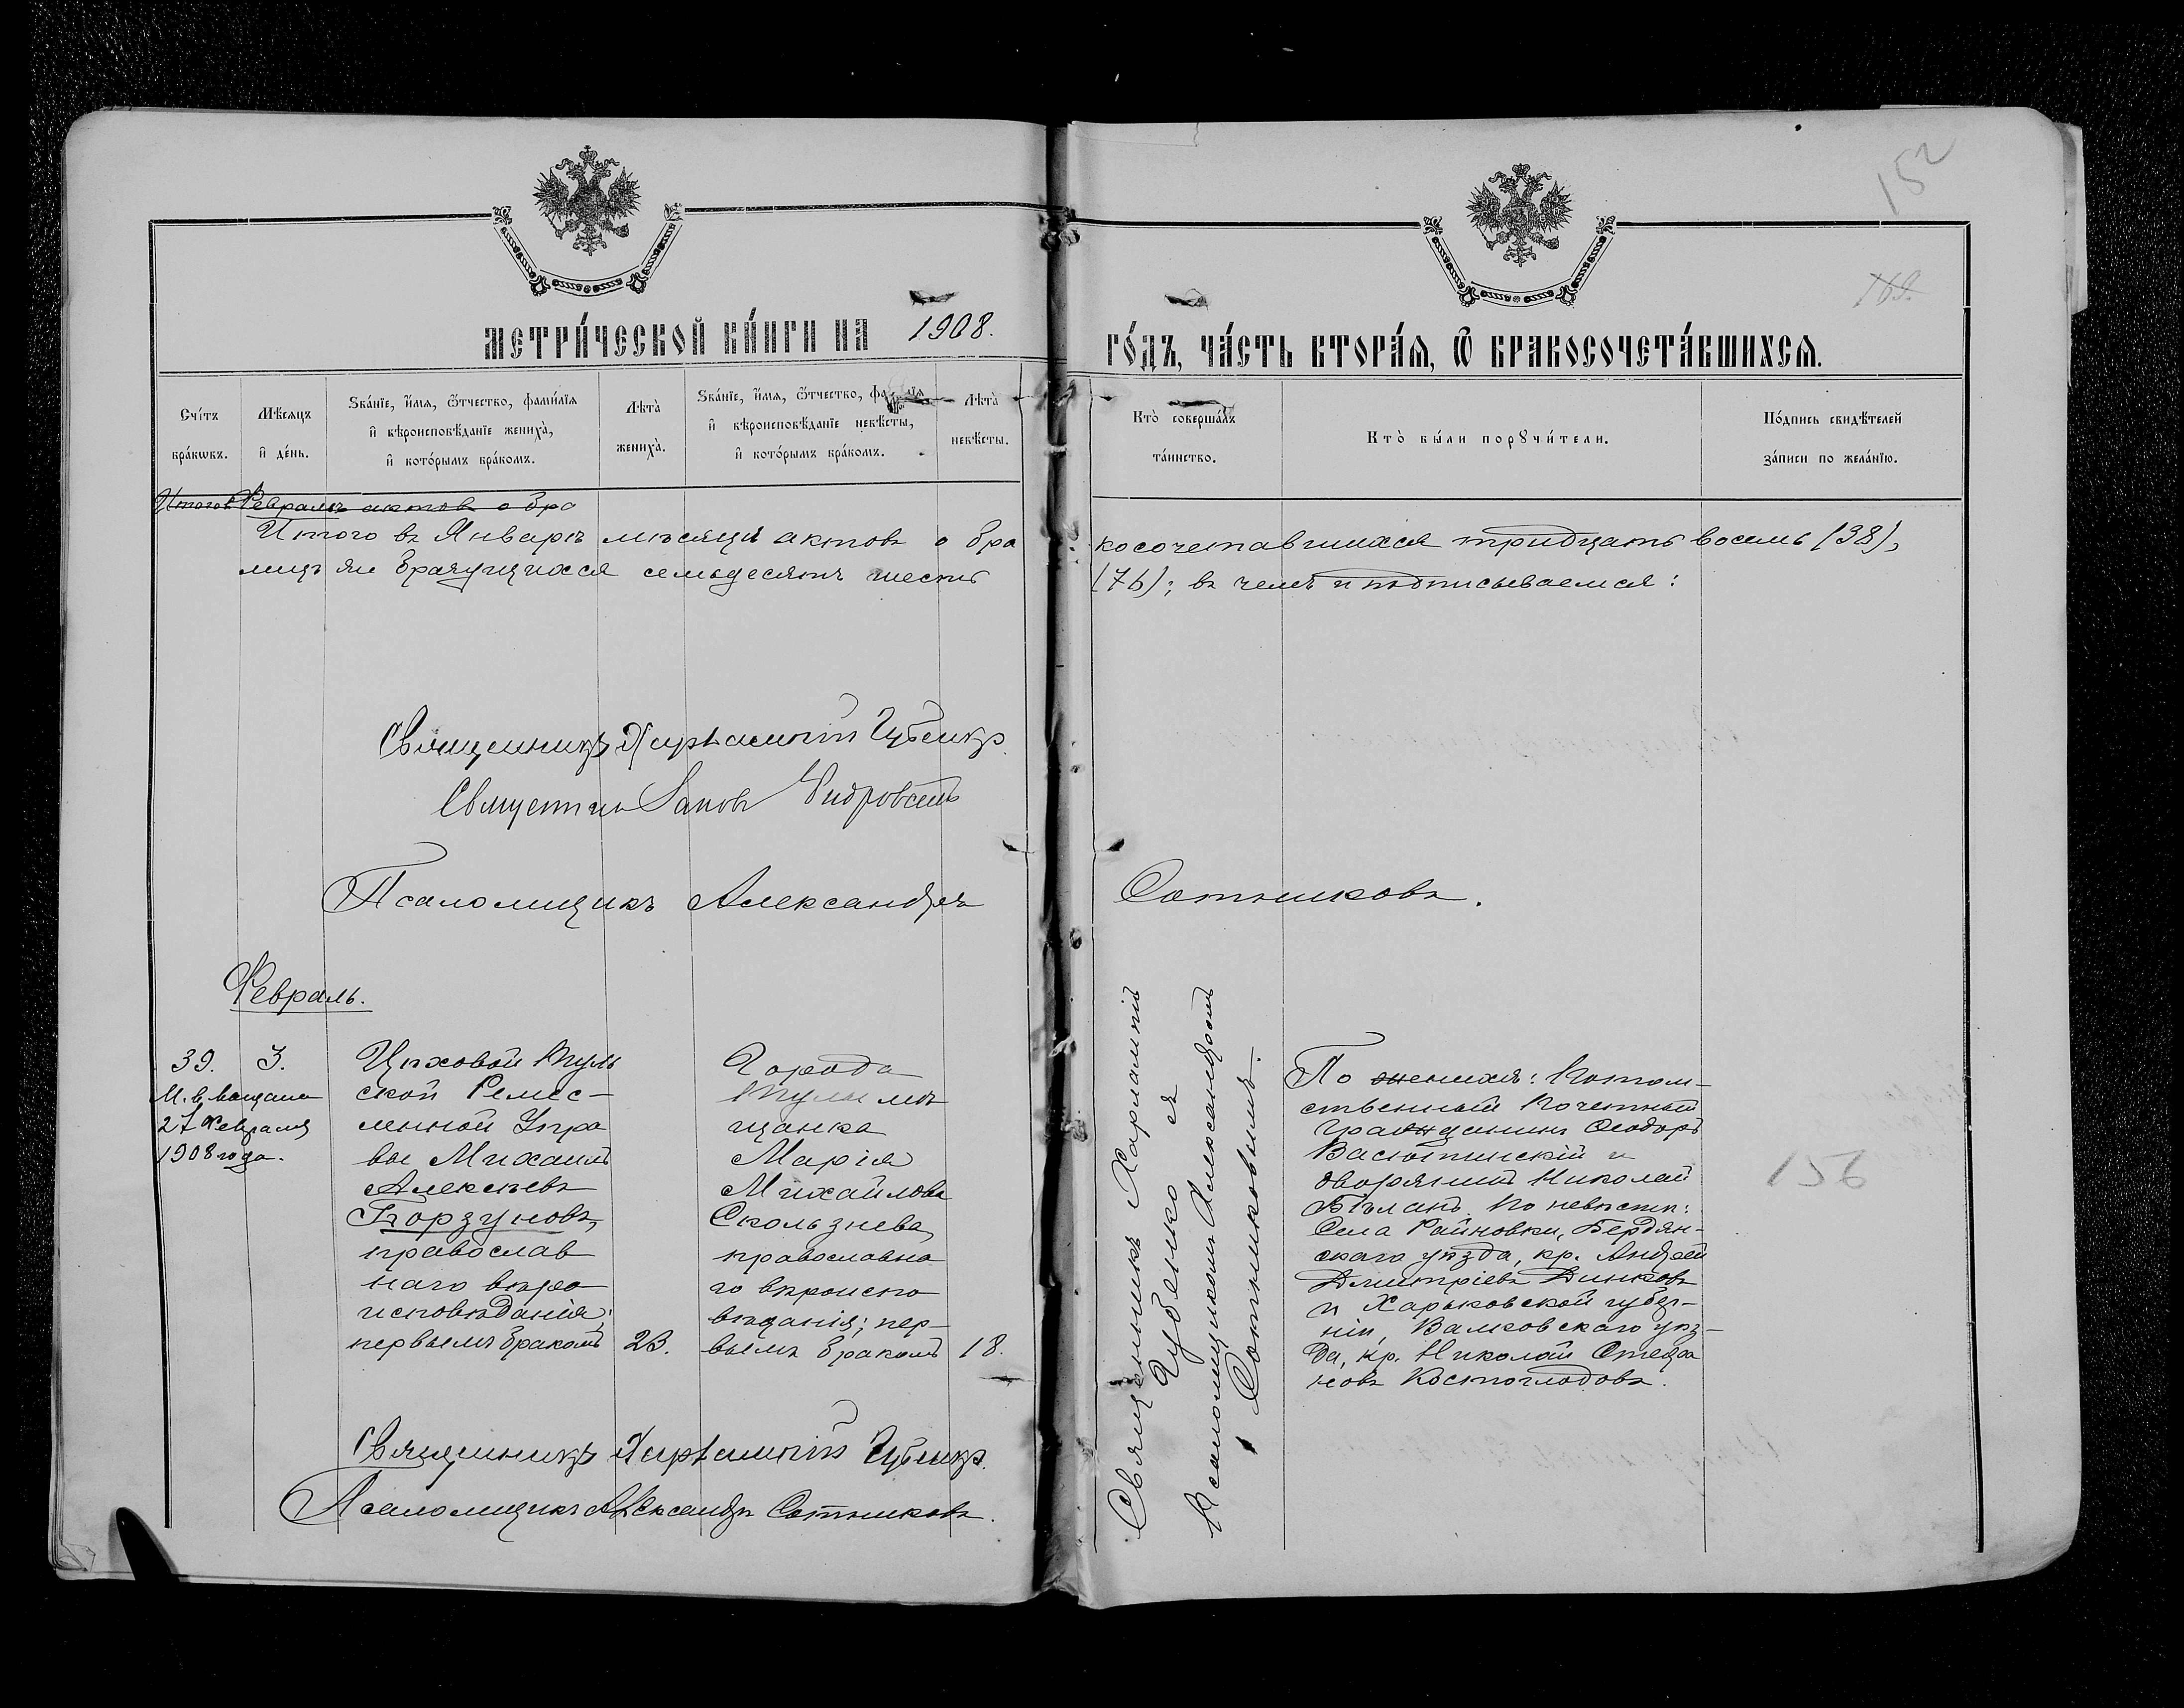 152
169.
МЕТРИ́ЧЕСКОЙ КНИ́ГИ НА 1908. ГО́ДЪ, ЧА́СТЬ ВТОРА́Ѧ, Ѿ БРАКОСОЧЕТА́ВШИХСѦ.
Сче́тъ бра́кѡвъ.
Мѣ́сѧцъ и҆ де́нь.
Зва́нїе, и҆́мѧ, ѻ҆́тчество, фами́лїѧ и҆ вѣроисповѣ́данїе жениха̀, и҆ кото́рымъ бра́комъ.
Лѣта̀ жениха̀.
Зва́нїе, и҆́мѧ, ѻ҆́тчество, фами́лїѧ и҆ вѣроисповѣ́данїе невѣ́сты, и҆ кото́рымъ бра́комъ.
Лѣта̀ невѣ́сты.
Кто̀ соверша́лъ та́инство.
Кто̀ бы́ли порꙋчи́тели.
По́дпись свидѣ́телей за́писи по жела́нїю.
Итого въ Февралѣ актовъ о бра
Итого въ Январѣ мѣсяцѣ актовъ о бра
косочетавшихся тридцать восемь (38),
лицъ же брачущихся семьдесятъ шесть
(76); въ чемъ и подписываемся:
Священникъ Харлампій Губенко.
Священникъ
Псаломщикъ Александръ Сотниковъ.
Февраль.
39.
3.
М. в. выдана
27 Февраля
1908 года.
Цѣховой Туль
ской Ремес-
ленной Упра
вы Михаилъ
Алексѣевъ
Борзуновъ,
православ
наго вѣро
исповѣданія;
первымъ бракомъ
23.
Города
Тулы мѣ
щанка
Марія
Михайлова
Скользнева,
православна
го вѣроиспо
вѣданія; пер-
вымъ бракомъ
18.
Священникъ Харлампій
Губенко съ
Псаломщикомъ Александромъ
Сотниковымъ.
По женихѣ: Потом-
ственный Почетный
Гражданинъ Ѳеодоръ
Васютинскій и
дворянинъ Николай
Бѣланъ. По невѣстѣ:
Села Райновки, Бердян-
скаго уѣзда, кр. Андрей
Димитріевъ Динковъ
и Харьковской губер-
ніи, Валковскаго уѣз-
да, кр. Николай Стефа
новъ Костоглодовъ.
156
Священникъ Харлампій Губенко.
Псаломщикъ Александръ Сотниковъ.